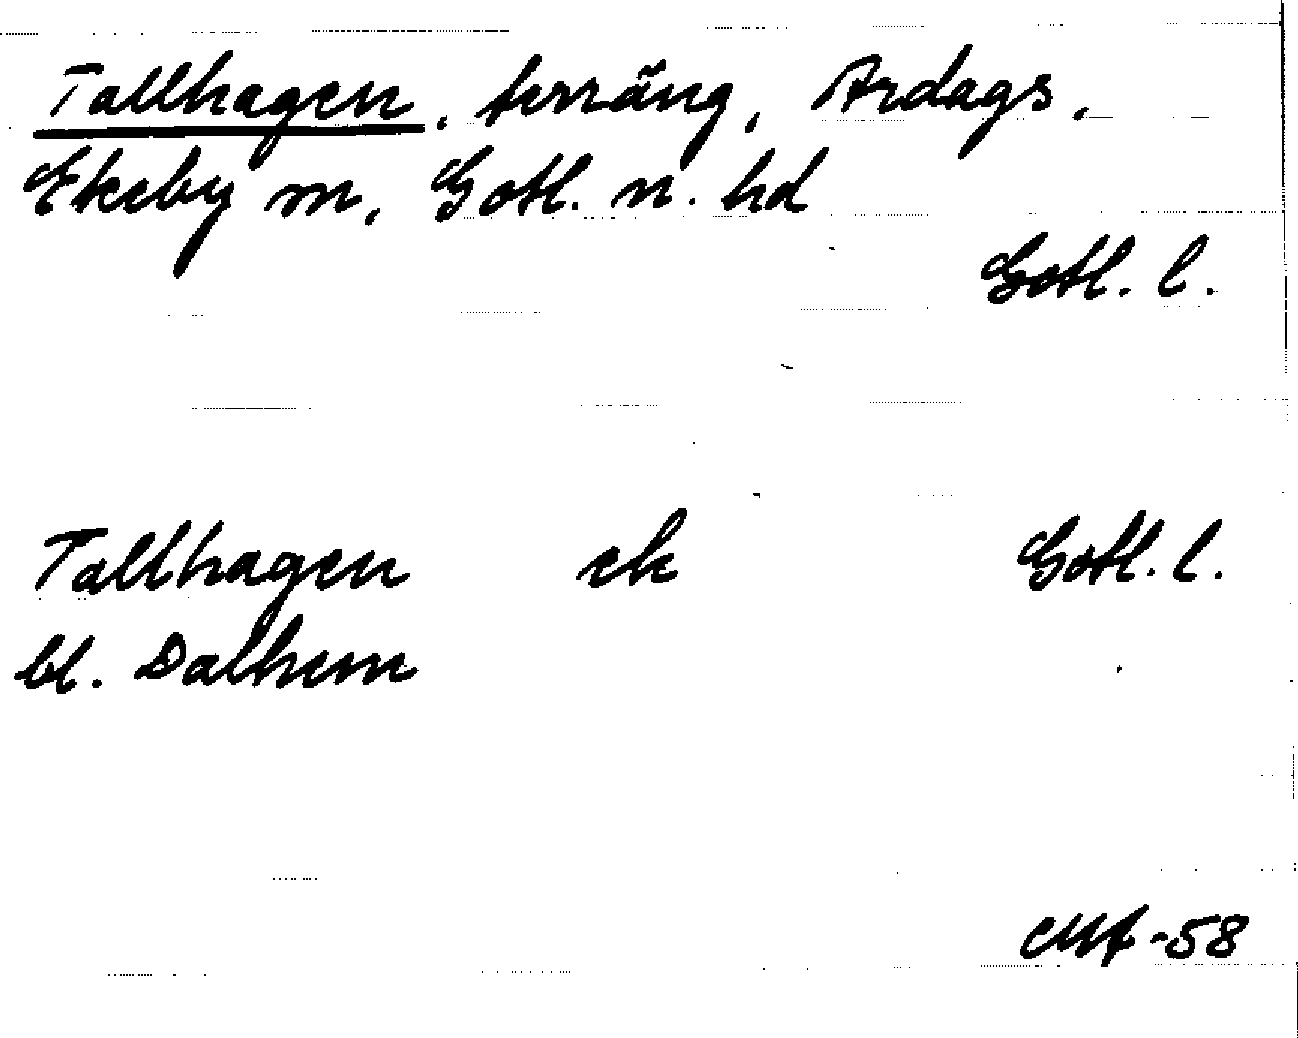 Tallhagen, terräng, Ardags,
Ekeby sn, Gotl. n. hd
Gotl. l.
Tallhagen ek Gotl. l.
bl. Dalhem
-58